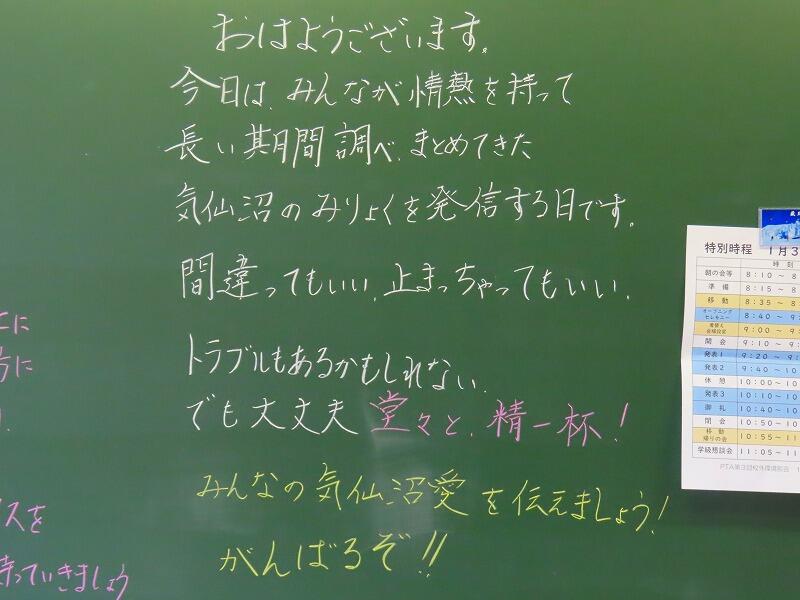 おはようございます。
今日は、みんなが情熱を持って
長い期間調べ、まとめてきた
気仙沼のみりょくを発信する日です。
間違ってもいい、止まっちゃってもいい、
トラブルもあるかもしれない、
でも大丈夫 堂々と、精一杯!
みんなの気仙沼愛を伝えましょう!
がんばるぞ!!
に
に
スを
持っていきましょう
特別時程 1月3
時 刻
朝の会等 8:10 ～ 8
準 備 8:15 ～ 8
移 動 8:35 ～ 8
オープニング
セレモニー 8:40 ～ 9
9:00 ～ 9
開 会 9:10 ～ 9:
発表1 9:20 ～ 9:
発表2 9:40 ～ 10
休 憩 10:00 ～ 10
発表3 10:10 ～ 10
御 礼 10:40 ～ 10
閉 会 10:50 ～ 10
移 動
帰りの会 10:55 ～ 11
学級懇談会 11:05 ～ 11